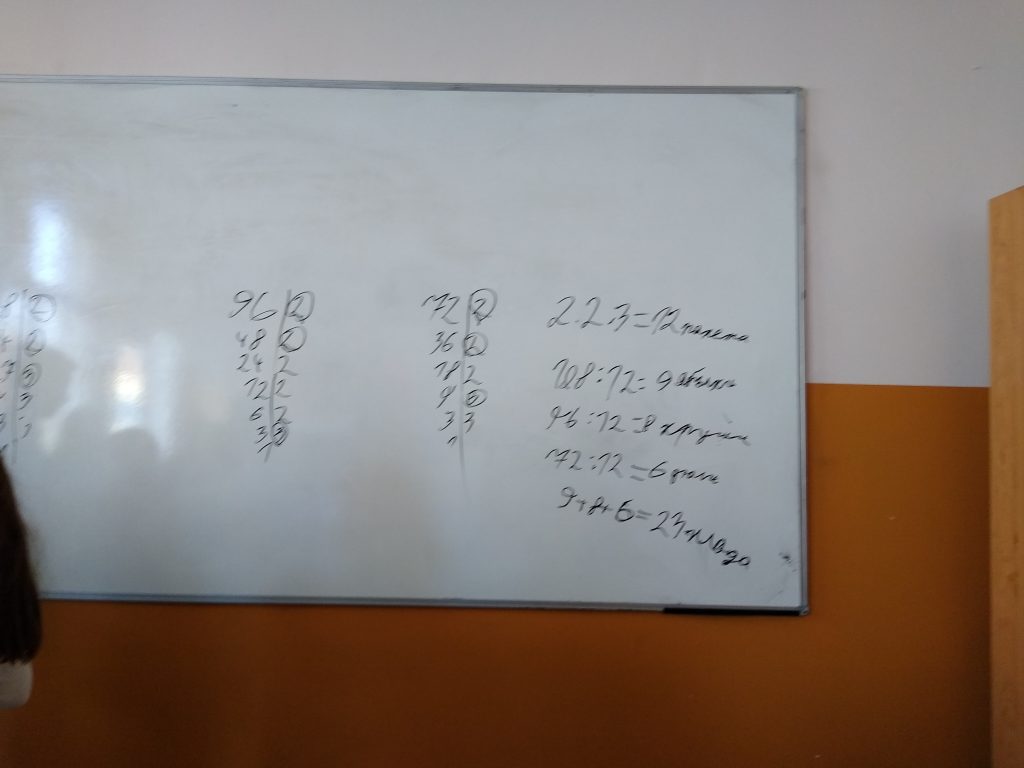 8 | 2
2
3
3
3
96 | 2
48 | 2
24 | 2
12 | 2
6 | 2
3 | 3
1
72 | 2
36 | 2
18 | 2
9 | 3
3 | 3
1
2.2.3=12 пакета
108:12=9 ябълки
96:12=8 круши
72:12=6
9+8+6=23 плода